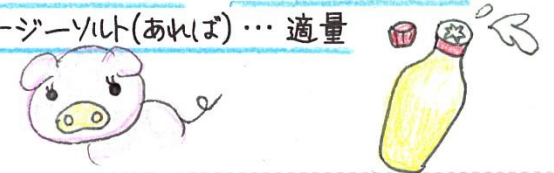 ージーソルト(あれば)… 適量